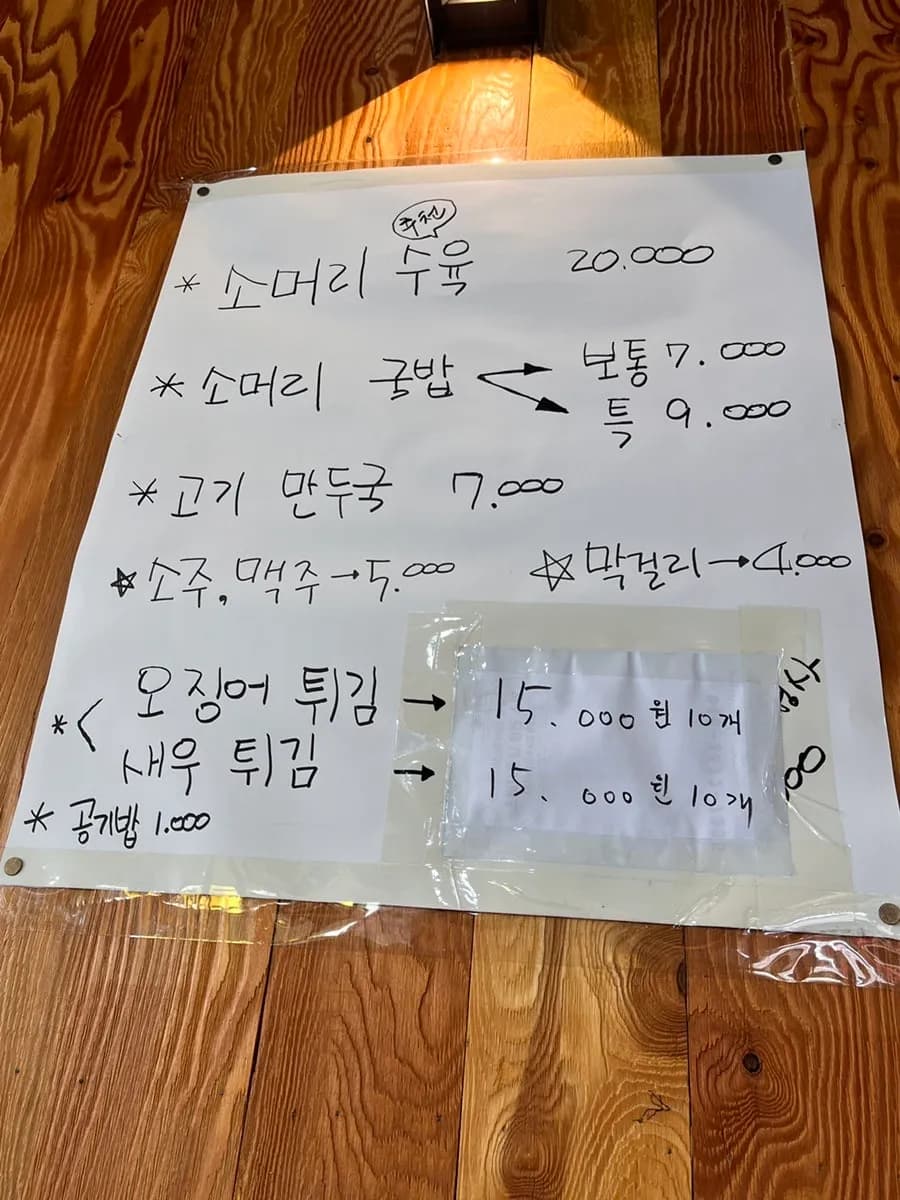 추천
* 소머리 수육 20.000
* 소머리 국밥 보통 7.000
특 9.000
* 고기 만두국 7.000
☆ 소주, 맥주 → 5.000 ☆ 막걸리 → 4.000
* < 오징어 튀김 → 15.000원 10개
새우 튀김 → 15.000원 10개
* 공기밥 1.000